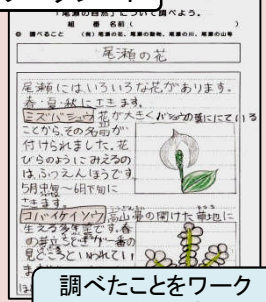 「尾瀬の自然」について調べよう。
組　番　名前（　　　）
◎ 調べること　（例）尾瀬の花、尾瀬の動物、尾瀬の川、尾瀬の山等
尾瀬の花
尾瀬にはいろいろな花があります。
春・夏・秋にさきます。
ミズバショウ 花が大きくバショウの葉ににている
ことから、その名前が
付けられました。花
びらのようにみえるの
は、ふつえんほうです。
5月中旬～6月下旬に
さきます。
コバイケイソウ 高山帯の開けた草地に
生える多年草です。春
の芽立ちどきが一番の
見どころといわれてい
調べたことをワーク